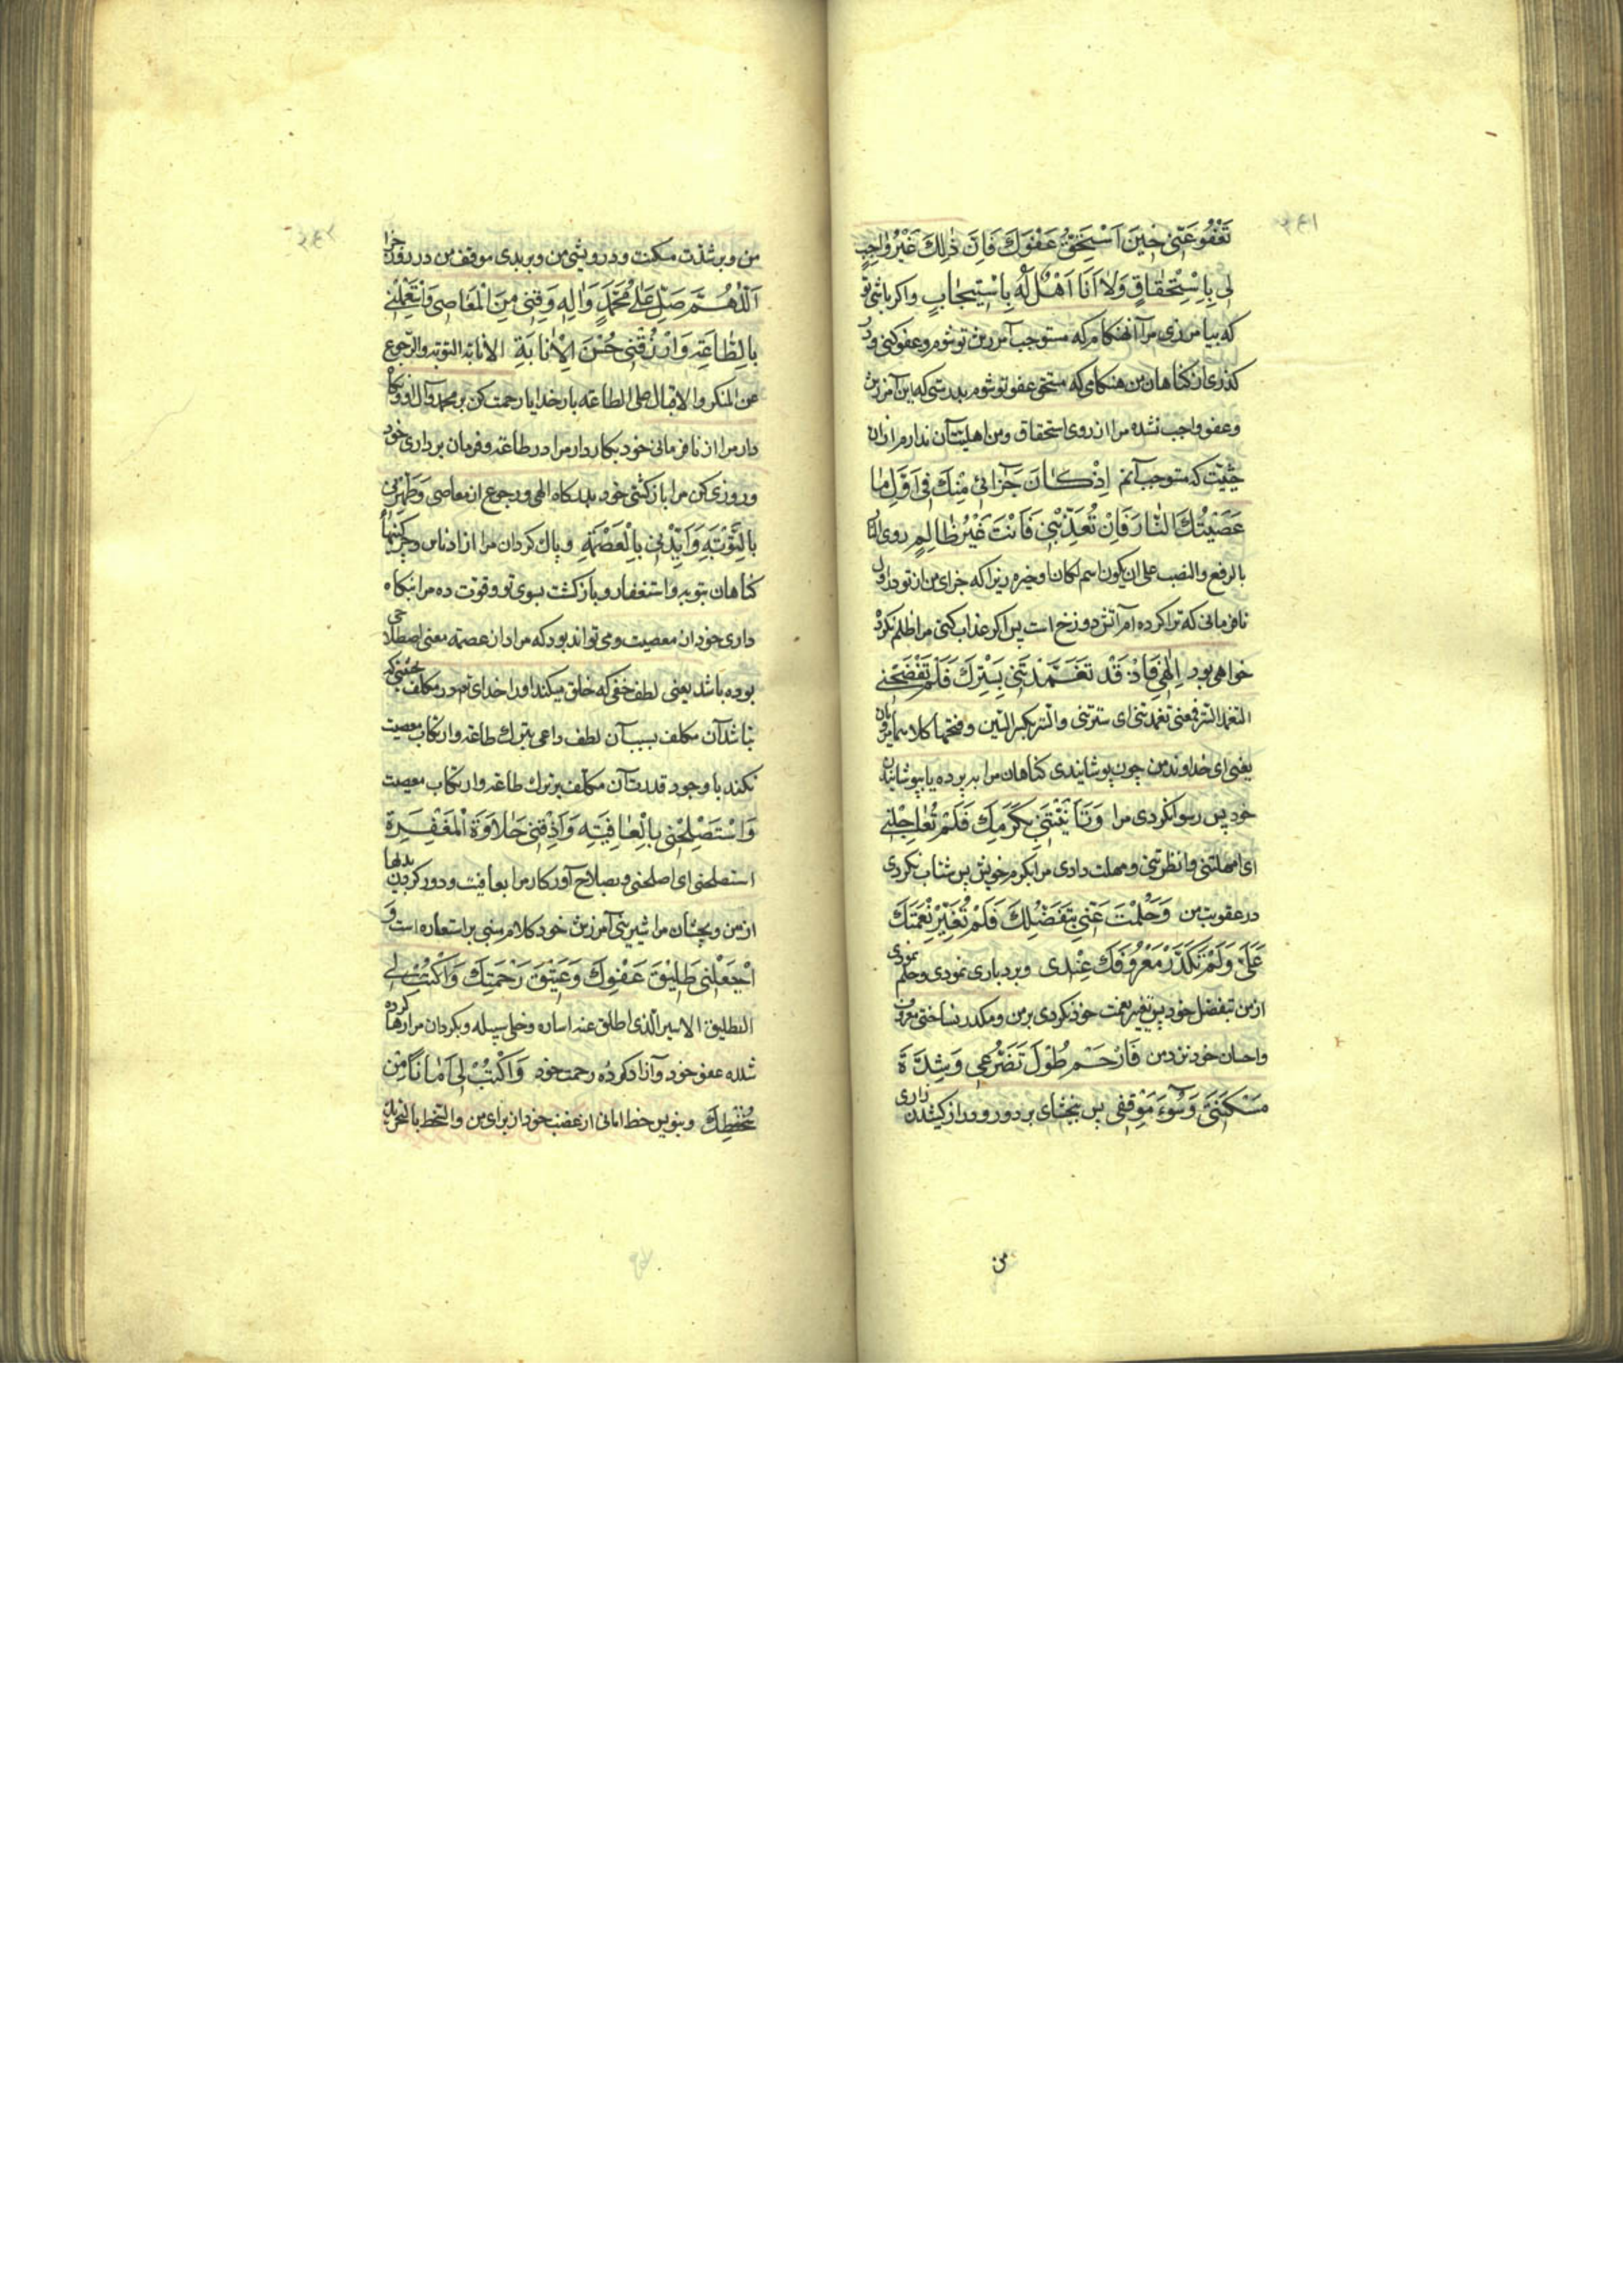 ٢٤١
تَغْفُوَ عَنّی حینَ اَسْتَحِقُّ عَفْوَكَ فَاِنَّ ذٰلِكَ غَیْرُ واجِبٍ
لی بِاِسْتِحْقاقٍ وَلا اَنَا اَهْلٌ لَهُ بِاسْتیجابٍ واکر باشی تو
که بیامرزی مرا آنهنکام که مستوجب آمرزش تو شوم وعفو کنی ودر
کذری از کناهان من هنکامی که مستحق عفو تو شوم بدرستی که این آمرزش
وعفو واجب نشده مرا از روی استحقاق ومن اهلیت آن ندارم از آن
حیثیت که مستوجب آنم اِذْ کانَ جَزائی مِنْكَ فی اَوَّلِ ما
عَصَیْتُكَ النّارَ فَاِنْ تُعَذِّبْنی فَاَنْتَ غَیْرُ ظالِمٍ روی النار
بالرفع والنصب علی ان یکون اسم لکان او خبره زیرا که جزای من از تو در اول
نافرمانی که ترا کرده ام آتش دوزخ است پس اکر عذاب کنی مرا ظلم نکرده
خواهی بود اِلٰهی فَاِذْ قَدْ تَغَمَّدْتَنی بِسَتْرِكَ فَلَمْ تَفْضَحْنی
التغمد الستر فمعنی تغمدتنی ای سترتنی والستر بکسر السین وفتحها کلاهما مرویان
یعنی ای خداوند من چون پوشانیدی کناهان مرا به پرده یا بپوشانیدن
خود پس رسوا نکردی مرا وَتَاَنَّیْتَنی بِکَرَمِكَ فَلَمْ تُعاجِلْنی
ای امهلتنی وانظرتنی ومهلت دادی مرا بکرم خویش پس شتاب نکردی
در عقوبت من وَحَلُمْتَ عَنّی بِتَفَضُّلِكَ فَلَمْ تُغَیِّرْ نِعْمَتَكَ
عَلَیَّ وَلَمْ تُکَدِّرْ مَعْرُوفَكَ عِنْدی وبردباری نمودی وحلم نمودی
از من بتفضل خود پس تغیر نعمت خود نکردی بر من ومکدر نساختی معروف
واحسان خود نزد من فَارْحَمْ طُوْلَ تَضَرُّعی وَشِدَّةَ
مَسْکَنَتی وَسُوٓءَ مَوْقِفی پس ببخشای بر دور ودراز کشیدن زاری
من
٢٤٢
من وبر شدت مسکنت ودرویشی من وبر بدی موقف من در روز جزا
اَللّٰهُمَّ صَلِّ عَلٰی مُحَمَّدٍ وَاٰلِهِ وَقِنی مِنَ الْمَعاصی وَاسْتَعْمِلْنی
بِالطّاعَةِ وَارْزُقْنی حُسْنَ الْاِنابَةِ الانابة التوبة والرجوع
عن المنکر والاقبال علی الطاعة بار خدایا رحمت کن بر محمد وآل او ونکاه
دار مرا از نافرمانی خود بکار دار مرا در طاعة وفرمان برداری خود
وروزی کن مرا بازکشتی خود بدرکاه الهی ورجوع از معاصی وَطَهِّرْنی
بِالتَّوْبَةِ وَاَیِّدْنی بِالْعِصْمَةِ وپاك کردان مرا از ادناس وچرکینیهای
کناهان بتوبه واستغفار وبازکشت بسوی تو وقوّت ده مرا بنکاه
داری خود از معصیت ومی تواند بود که مراد از عصمة معنی اصطلاحی
بوده باشد یعنی لطف خفی که خلق میکند او را خدای تم در مکلف بحیثیتی که
نباشد آن مکلف بسبب آن لطف داعی بترك طاعة وارتکاب معصیت
نکند با وجود قدرت آن مکلف بر ترك طاعة وارتکاب معصیت
وَاسْتَصْلِحْنی بِالْعافِیَةِ وَاَذِقْنی حَلاوَةَ الْمَغْفِرَةِ
استصلحنی ای اصلحنی وبصلاح آور کار مرا بعافیت ودور کردن بدیها
از من وبچشان مرا شیرینی آمرزش خود کلام مبنی بر استعاره است وَ
اجْعَلْنی طَلیقَ عَفْوِكَ وَعَتیقَ رَحْمَتِكَ وَاکْتُبْ لی
الطلیق الاسیر الّذی اطلق عنه اساره وخلی سبیله وبکردان مرا رها کرده
شده عفو خود وآزاد کرده رحمت خود وَاکْتُبْ لی اَماناً مِنْ
سُخْطِكَ وبنویس خط امانی از غضب خود از برای من والسخط بالتحریك